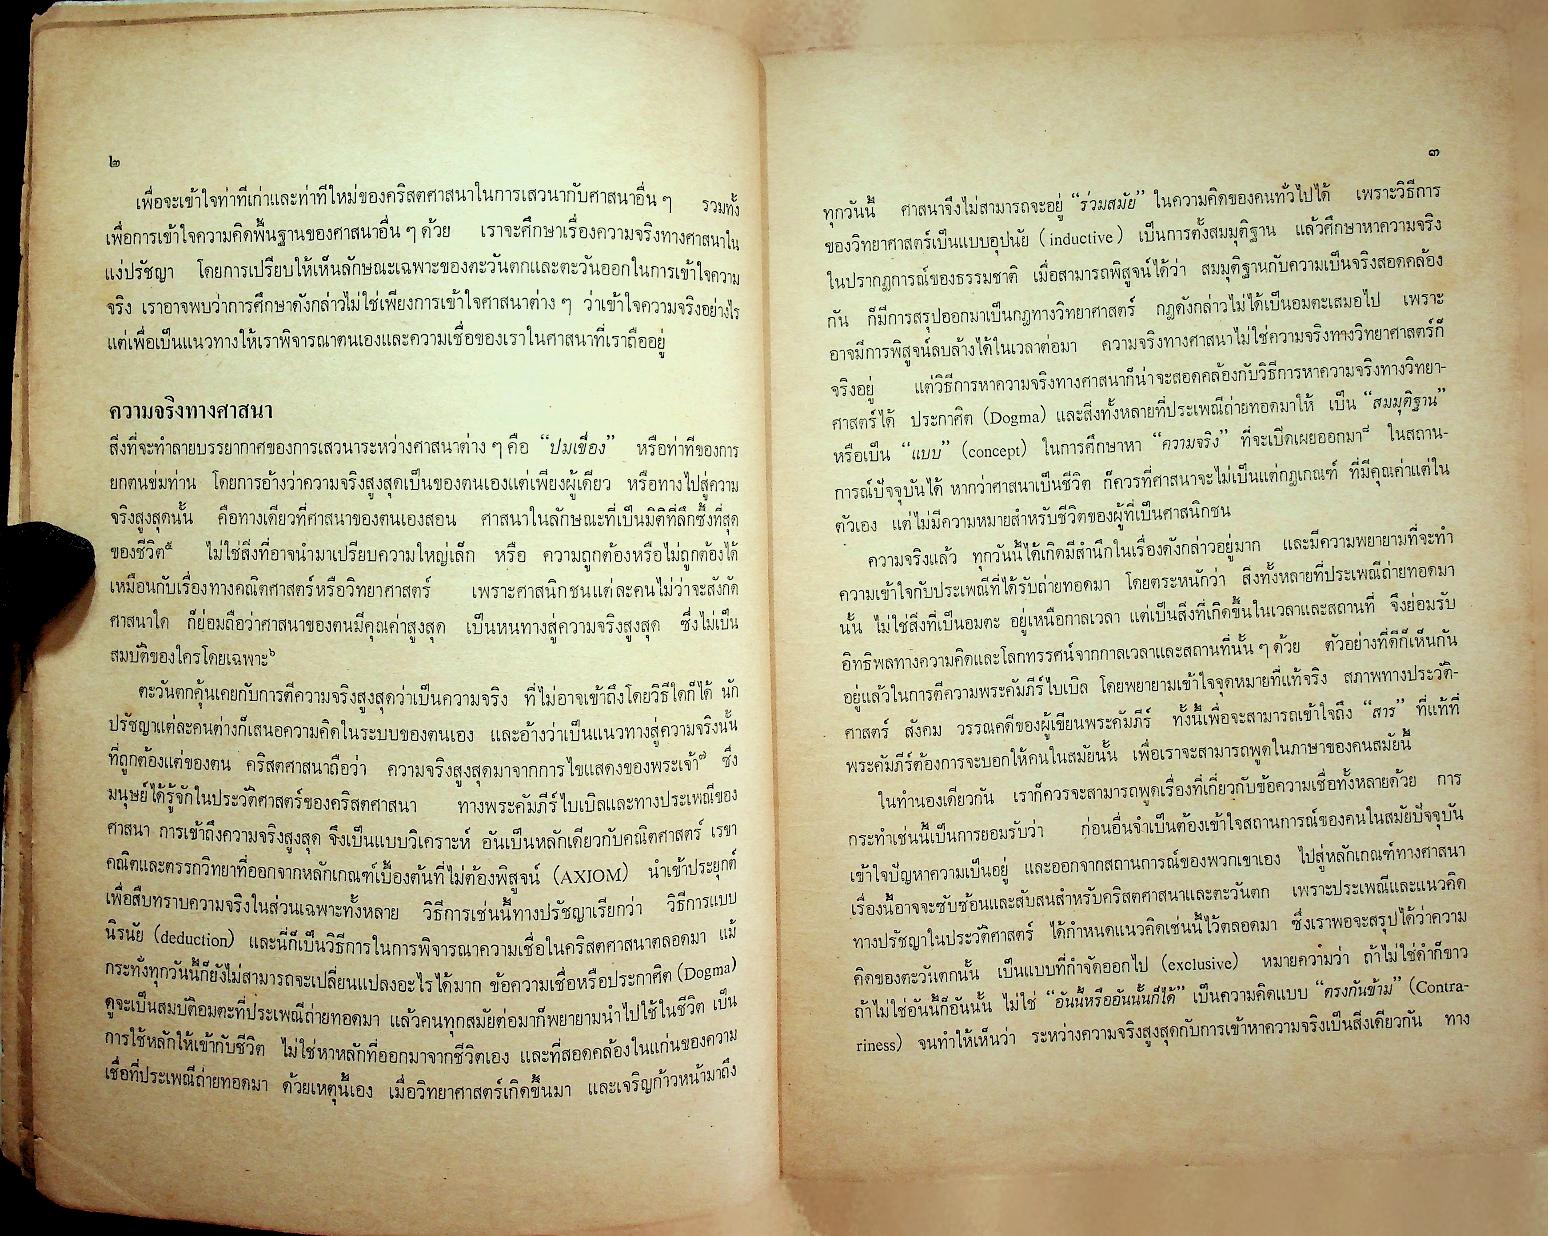 ๒
เพื่อจะเข้าใจท่าทีเก่าและท่าทีใหม่ของคริสตศาสนาในการเสวนากับศาสนาอื่น ๆ รวมทั้ง
เพื่อการเข้าใจความคิดพื้นฐานของศาสนาอื่น ๆ ด้วย เราจะศึกษาเรื่องความจริงทางศาสนาใน
แง่ปรัชญา โดยการเปรียบให้เห็นลักษณะเฉพาะของตะวันตกและตะวันออกในการเข้าใจความ
จริง เราอาจพบว่าการศึกษาดังกล่าวไม่ใช่เพียงการเข้าใจศาสนาต่าง ๆ ว่าเข้าใจความจริงอย่างไร
แต่เพื่อเป็นแนวทางให้เราพิจารณาตนเองและความเชื่อของเราในศาสนาที่เราถืออยู่
ความจริงทางศาสนา
สิ่งที่จะทำลายบรรยากาศของการเสวนาระหว่างศาสนาต่าง ๆ คือ “ปมเขื่อง” หรือท่าทีของการ
ยกตนข่มท่าน โดยการอ้างว่าความจริงสูงสุดเป็นของตนเองแต่เพียงผู้เดียว หรือทางไปสู่ความ
จริงสูงสุดนั้น คือทางเดียวที่ศาสนาของตนเองสอน ศาสนาในลักษณะที่เป็นมิติที่ลึกซึ้งที่สุด
ของชีวิต๕ ไม่ใช่สิ่งที่อาจนำมาเปรียบความใหญ่เล็ก หรือ ความถูกต้องหรือไม่ถูกต้องได้
เหมือนกับเรื่องทางคณิตศาสตร์หรือวิทยาศาสตร์ เพราะศาสนิกชนแต่ละคนไม่ว่าจะสังกัด
ศาสนาใด ก็ย่อมถือว่าศาสนาของตนมีคุณค่าสูงสุด เป็นหนทางสู่ความจริงสูงสุด ซึ่งไม่เป็น
สมบัติของใครโดยเฉพาะ๖
ตะวันตกคุ้นเคยกับการตีความจริงสูงสุดว่าเป็นความจริง ที่ไม่อาจเข้าถึงโดยวิธีใดก็ได้ นัก
ปรัชญาแต่ละคนต่างก็เสนอความคิดในระบบของตนเอง และอ้างว่าเป็นแนวทางสู่ความจริงนั้น
ที่ถูกต้องแต่ของตน คริสตศาสนาถือว่า ความจริงสูงสุดมาจากการไขแสดงของพระเจ้า๗ ซึ่ง
มนุษย์ได้รู้จักในประวัติศาสตร์ของคริสตศาสนา ทางพระคัมภีร์ไบเบิลและทางประเพณีของ
ศาสนา การเข้าถึงความจริงสูงสุด จึงเป็นแบบวิเคราะห์ อันเป็นหลักเดียวกับคณิตศาสตร์ เรขา
คณิตและตรรกวิทยาที่ออกจากหลักเกณฑ์เบื้องต้นที่ไม่ต้องพิสูจน์ (AXIOM) นำเข้าประยุกต์
เพื่อสืบทราบความจริงในส่วนเฉพาะทั้งหลาย วิธีการเช่นนี้ทางปรัชญาเรียกว่า วิธีการแบบ
นิรนัย (deduction) และนี่ก็เป็นวิธีการในการพิจารณาความเชื่อในคริสตศาสนาตลอดมา แม้
กระทั่งทุกวันนี้ก็ยังไม่สามารถจะเปลี่ยนแปลงอะไรได้มาก ข้อความเชื่อหรือประกาศิต (Dogma)
ดูจะเป็นสมบัติอมตะที่ประเพณีถ่ายทอดมา แล้วคนทุกสมัยต่อมาก็พยายามนำไปใช้ในชีวิต เป็น
การใช้หลักให้เข้ากับชีวิต ไม่ใช่หาหลักที่ออกมาจากชีวิตเอง และที่สอดคล้องในแก่นของความ
เชื่อที่ประเพณีถ่ายทอดมา ด้วยเหตุนี้เอง เมื่อวิทยาศาสตร์เกิดขึ้นมา และเจริญก้าวหน้ามาถึง
๓
ทุกวันนี้ ศาสนาจึงไม่สามารถจะอยู่ “ร่วมสมัย” ในความคิดของคนทั่วไปได้ เพราะวิธีการ
ของวิทยาศาสตร์เป็นแบบอุปนัย (inductive) เป็นการตั้งสมมุติฐาน แล้วศึกษาหาความจริง
ในปรากฎการณ์ของธรรมชาติ เมื่อสามารถพิสูจน์ได้ว่า สมมุติฐานกับความเป็นจริงสอดคล้อง
กัน ก็มีการสรุปออกมาเป็นกฎทางวิทยาศาสตร์ กฎดังกล่าวไม่ได้เป็นอมตะเสมอไป เพราะ
อาจมีการพิสูจน์ลบล้างได้ในเวลาต่อมา ความจริงทางศาสนาไม่ใช่ความจริงทางวิทยาศาสตร์ก็
จริงอยู่ แต่วิธีการหาความจริงทางศาสนาก็น่าจะสอดคล้องกับวิธีการหาความจริงทางวิทยา-
ศาสตร์ได้ ประกาศิต (Dogma) และสิ่งทั้งหลายที่ประเพณีถ่ายทอดมาให้ เป็น “สมมุติฐาน”
หรือเป็น “แบบ” (concept) ในการศึกษาหา “ความจริง” ที่จะเปิดเผยออกมา๘ ในสถาน-
การณ์ปัจจุบันได้ หากว่าศาสนาเป็นชีวิต ก็ควรที่ศาสนาจะไม่เป็นแต่กฎเกณฑ์ ที่มีคุณค่าแต่ใน
ตัวเอง แต่ไม่มีความหมายสำหรับชีวิตของผู้ที่เป็นศาสนิกชน
ความจริงแล้ว ทุกวันนี้ได้เกิดมีสำนึกในเรื่องดังกล่าวอยู่มาก และมีความพยายามที่จะทำ
ความเข้าใจกับประเพณีที่ได้รับถ่ายทอดมา โดยตระหนักว่า สิ่งทั้งหลายที่ประเพณีถ่ายทอดมา
นั้น ไม่ใช่สิ่งที่เป็นอมตะ อยู่เหนือกาลเวลา แต่เป็นสิ่งที่เกิดขึ้นในเวลาและสถานที่ จึงย่อมรับ
อิทธิพลทางความคิดและโลกทรรศน์จากกาลเวลาและสถานที่นั้น ๆ ด้วย ตัวอย่างที่ดีก็เห็นกัน
อยู่แล้วในการตีความพระคัมภีร์ไบเบิล โดยพยายามเข้าใจจุดหมายที่แท้จริง สภาพทางประวัติ-
ศาสตร์ สังคม วรรณคดีของผู้เขียนพระคัมภีร์ ทั้งนี้เพื่อจะสามารถเข้าใจถึง “สาร” ที่แท้ที่
พระคัมภีร์ต้องการจะบอกให้คนในสมัยนั้น เพื่อเราจะสามารถพูดในภาษาของคนสมัยนี้
ในทำนองเดียวกัน เราก็ควรจะสามารถพูดเรื่องที่เกี่ยวกับข้อความเชื่อทั้งหลายด้วย การ
กระทำเช่นนี้เป็นการยอมรับว่า ก่อนอื่นจำเป็นต้องเข้าใจสถานการณ์ของคนในสมัยปัจจุบัน
เข้าใจปัญหาความเป็นอยู่ และออกจากสถานการณ์ของพวกเขาเอง ไปสู่หลักเกณฑ์ทางศาสนา
เรื่องนี้อาจจะซับซ้อนและสับสนสำหรับคริสตศาสนาและตะวันตก เพราะประเพณีและแนวคิด
ทางปรัชญาในประวัติศาสตร์ ได้กำหนดแนวคิดเช่นนี้ไว้ตลอดมา ซึ่งเราพอจะสรุปได้ว่าความ
คิดของตะวันตกนั้น เป็นแบบที่กำจัดออกไป (exclusive) หมายความว่า ถ้าไม่ใช่ดำก็ขาว
ถ้าไม่ใช่อันนี้ก็อันนั้น ไม่ใช่ “อันนี้หรืออันนั้นก็ได้” เป็นความคิดแบบ “ตรงกันข้าม” (Contra-
riness) จนทำให้เห็นว่า ระหว่างความจริงสูงสุดกับการเข้าหาความจริงเป็นสิ่งเดียวกัน ทาง